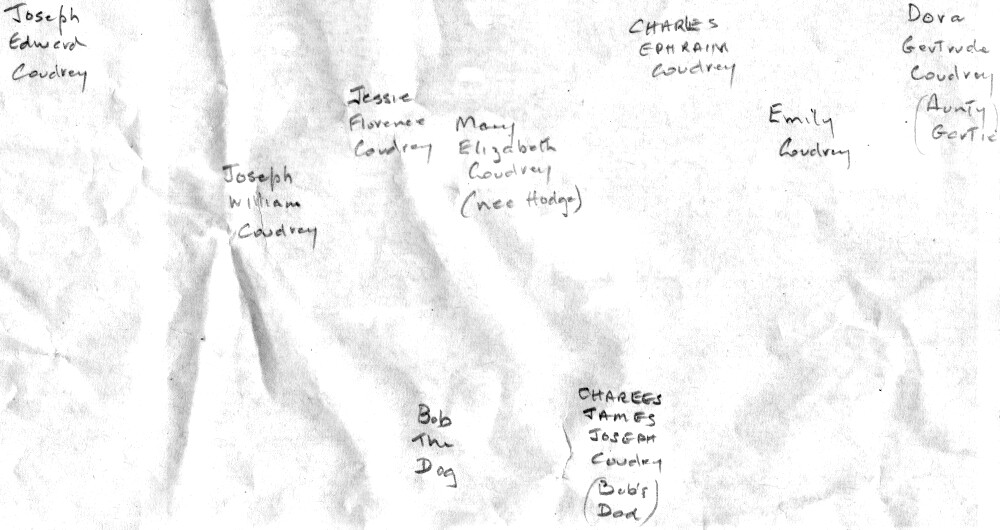 Joseph
Edward
Coudrey
CHARLES
EPHRAIM
Coudrey
Dora
Gertrude
Coudrey
(Aunty
Gertie)
Jessie
Florence
Coudrey
Mary
Elizabeth
Coudrey
(nee Hodge)
Emily
Coudrey
Joseph
William
Coudrey
Bob
The
Dog
CHARLES
JAMES
JOSEPH
Coudry
(Bob's
Dad)